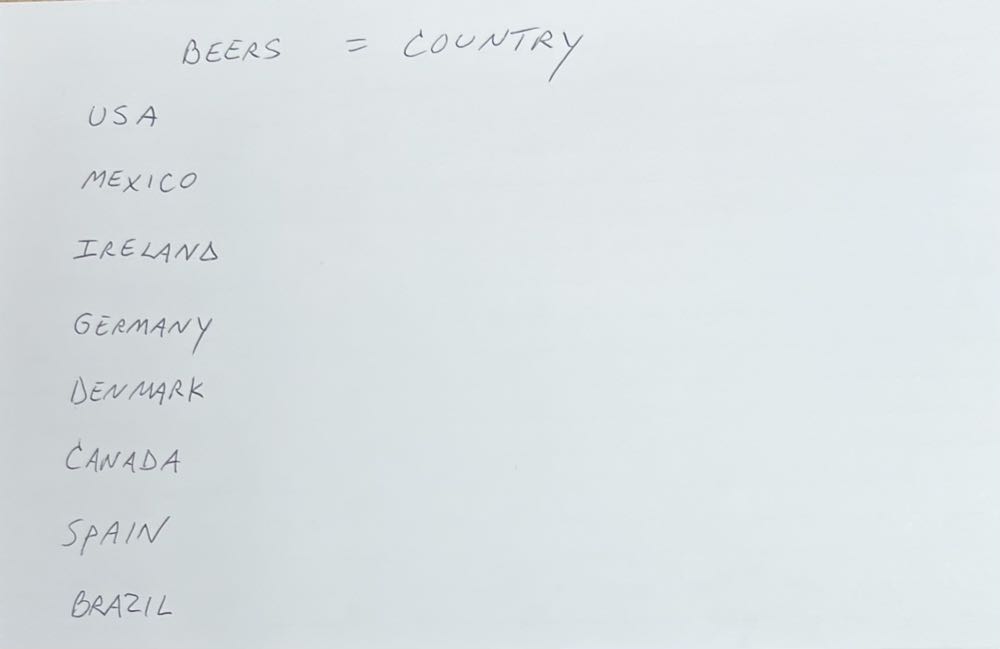 BEERS = COUNTRY
USA
MEXICO
IRELAND
GERMANY
DENMARK
CANADA
SPAIN
BRAZIL